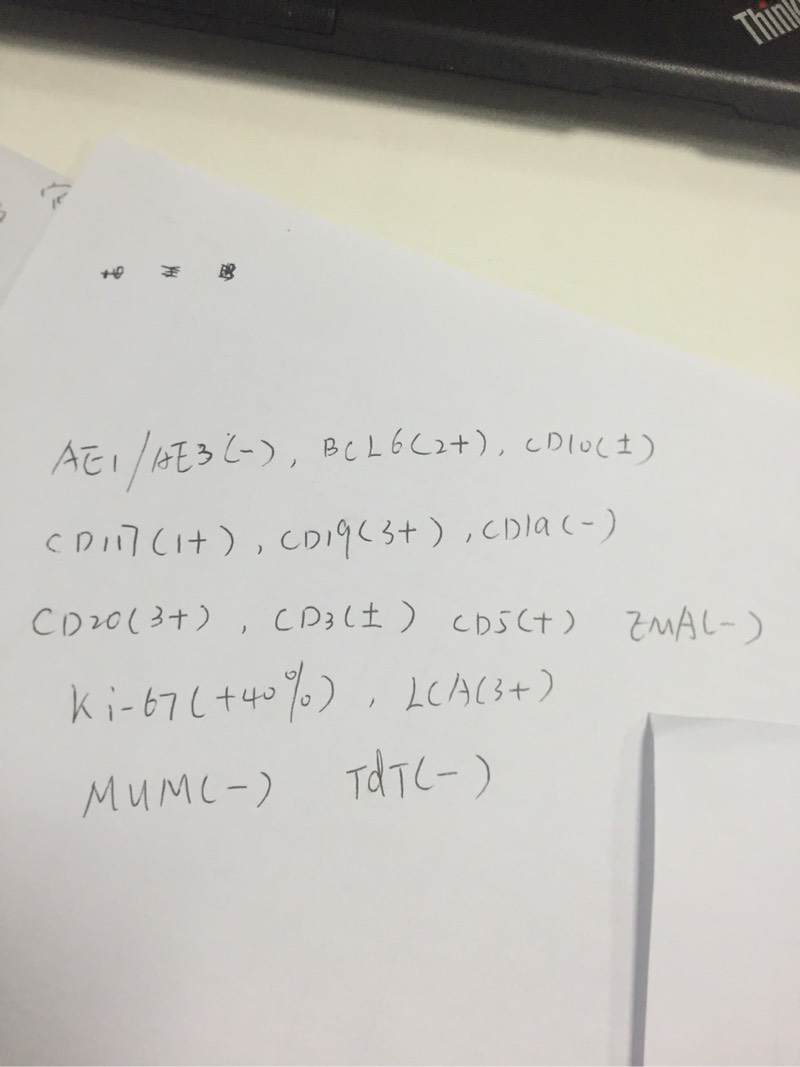 Think
AE1/AE3(-), BCL6(2+), CD10(±)
CD117(1+), CD19(3+), CD1a(-)
CD20(3+), CD3(±) CD5(+) EMA(-)
Ki-67(+40%), LCA(3+)
MUM(-) TdT(-)